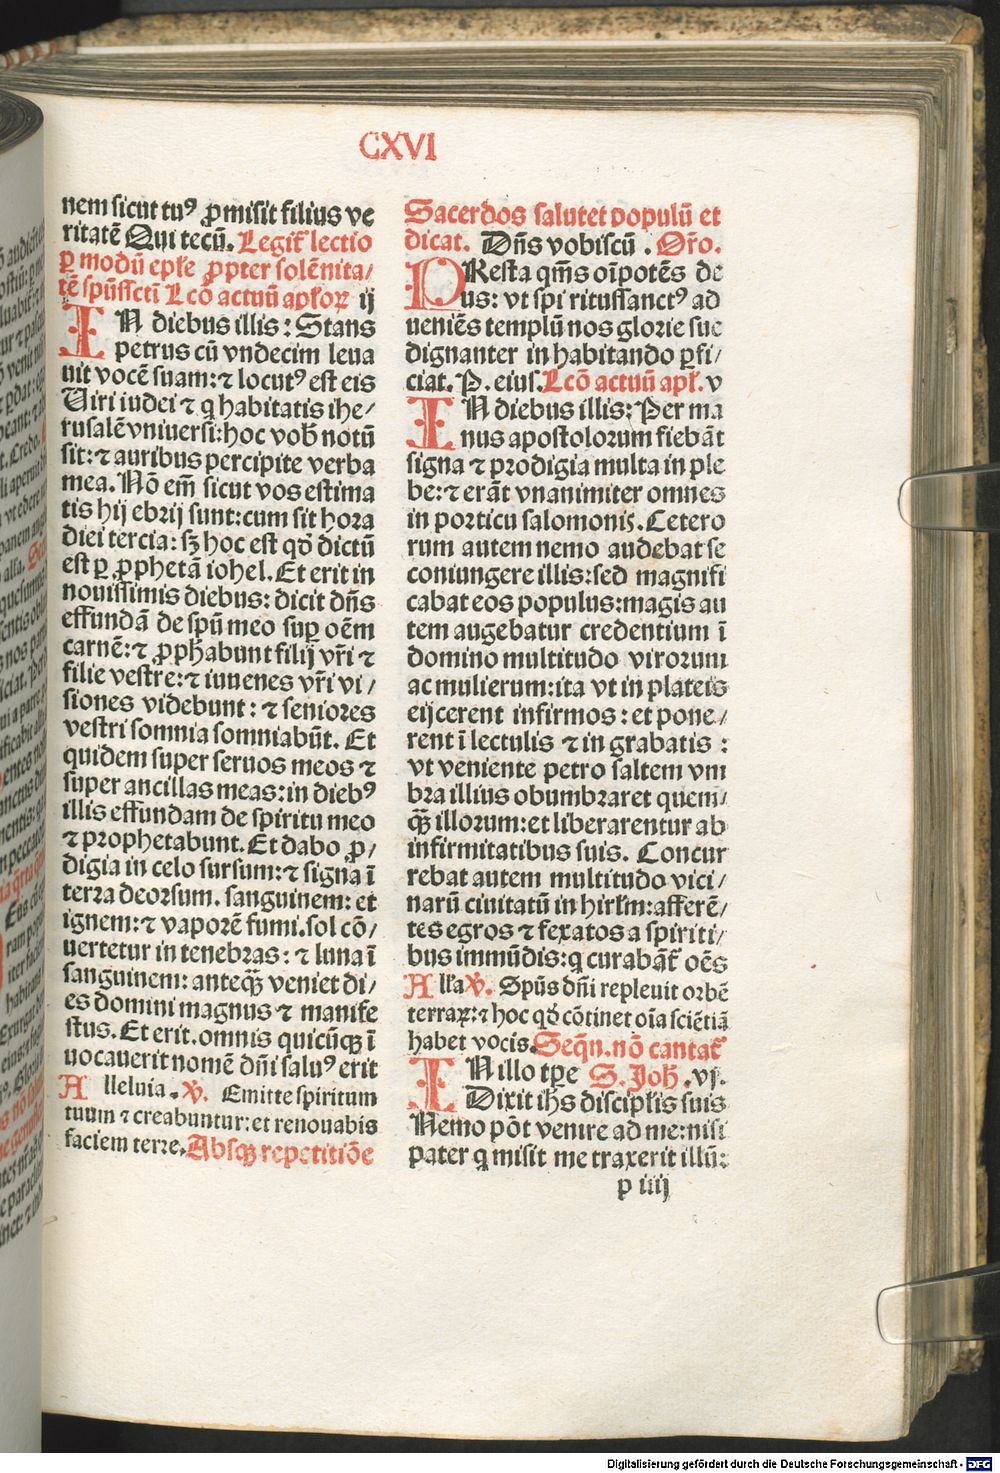 CXVI
nem sicut tuꝰ ꝓmisit filius ve
ritatē Qui tecū. Legit᷑ lectio
ꝑ modū epl̄e ꝓpter solēnita/
tē spūssctī Lcō actuū apl̓oꝝ ij
IN diebus illis: Stans
petrus cū vndecim leua
uit vocē suam: ⁊ locutꝰ est eis
Viri iudei ⁊ q habitatis ihe/
rusalē vniuersi: hoc vob̄ notū
sit: ⁊ auribus percipite verba
mea. Nō em̄ sicut vos estima
tis hij ebrij sunt: cum sit hora
diei tercia: sꝫ hoc est qd̄ dictū
est ꝑ ꝓphetā iohel. Et erit in
nouissimis diebus: dicit dn̄s
effundā de spū meo suꝑ oēm
carnē: ⁊ ꝓph̄abunt filij vr̄i ⁊
filie vestre: ⁊ iuuenes vr̄i vi/
siones videbunt: ⁊ seniores
vestri somnia somniabūt. Et
quidem super seruos meos ⁊
super ancillas meas: in diebꝰ
illis effundam de spiritu meo
⁊ prophetabunt. Et dabo ꝓ/
digia in celo sursum: ⁊ signa ī
terra deorsum. sanguinem: et
ignem: ⁊ vaporē fumi. sol cō/
uertetur in tenebras: ⁊ luna ī
sanguinem: anteqꝫ̄ veniet di/
es domini magnus ⁊ manife
stus. Et erit. omnis quicūqꝫ ī
uocauerit nomē dn̄i saluꝰ erit
Alleluia. ℣. Emitte spiritum
tuum ⁊ creabuntur: et renouabis
faciem terre. Absqꝫ repetitiōe
Sacerdos salutet populū et
dicat. Dn̄s vobiscū. Or̄o.
PResta qm̄s oīpotēs de
us: vt spi ritussanctꝰ ad
ueniēs templū nos glorie sue
dignanter in habitando ꝑfi/
ciat. P. eius. Lcō actuū apl̓. v
IN diebus illis: Per ma
nus apostolorum fiebāt
signa ⁊ prodigia multa in ple
be: ⁊ erāt vnanimiter omnes
in porticu salomonis. Cetero
rum autem nemo audebat se
coniungere illis: sed magnifi
cabat eos populus: magis au
tem augebatur credentium ī
domino multitudo virorum
ac mulierum: ita vt in plateis
eijcerent infirmos: et pone/
rent ī lectulis ⁊ in grabatis:
vt veniente petro saltem vm
bra illius obumbraret quem/
qꝫ̄ illorum: et liberarentur ab
infirmitatibus suis. Concur
rebat autem multitudo vici/
narū ciuitatū in hirl̄m: afferē/
tes egros ⁊ fexatos a spiriti/
bus immūdis: q curabāt᷑ oēs
All̓a ℣. Spūs dn̄i repleuit orbē
terraꝝ: ⁊ hoc qd̄ cōtinet oīa sciētiā
habet vocis. Seqn̄. nō cantat᷑
IN illo tp̄e S. Joh̄. vj.
Dixit ih̄s discipl̓is suis
Nemo pōt venire ad me: nisi
pater q misit me traxerit illū:
p iiij
Digitalisierung gefördert durch die Deutsche Forschungsgemeinschaft - DFG